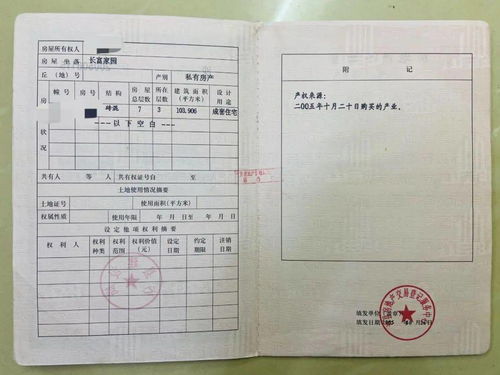 房屋所有权人
房屋坐落 长富家园
丘(地)号 产别 私有房产
幢号 房号 结构 房屋总层数 所在层数 建筑面积(平方米) 设计用途
房屋状况
砖混 7 3 103.906 成套住宅
---以下空白---
共有人 等 人 共有权证号自 至
土地使用情况摘要
土地证号 使用面积(平方米)
权属性质 使用年限 年 月 日至 年 月 日
设定他项权利摘要
权利人 权利种类 权利范围 权利价值(元) 设定日期 约定期限 注销日期
附记
产权来源:
二00五年十月二十日购买的产业。
房地产交易登记服务中心
填发单位
填发日期